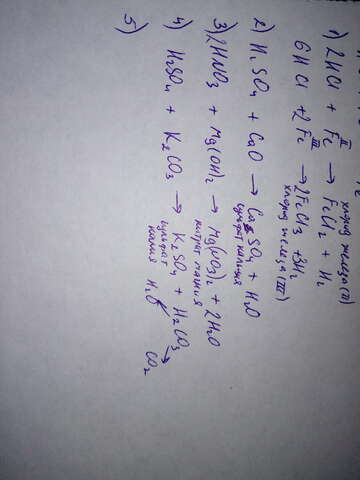 хлорид железа (II)
1) 2HCl + Fe → FeCl2 + H2
II
III
6HCl + 2Fe → 2FeCl3 + 3H2
хлорид железа (III)
2) H2SO4 + CaO → CaSO4 + H2O
сульфат кальция
3) 2HNO3 + Mg(OH)2 → Mg(NO3)2 + 2H2O
нитрат магния
4) H2SO4 + K2CO3 → K2SO4 + H2CO3
сульфат калия
H2O
CO2
5)